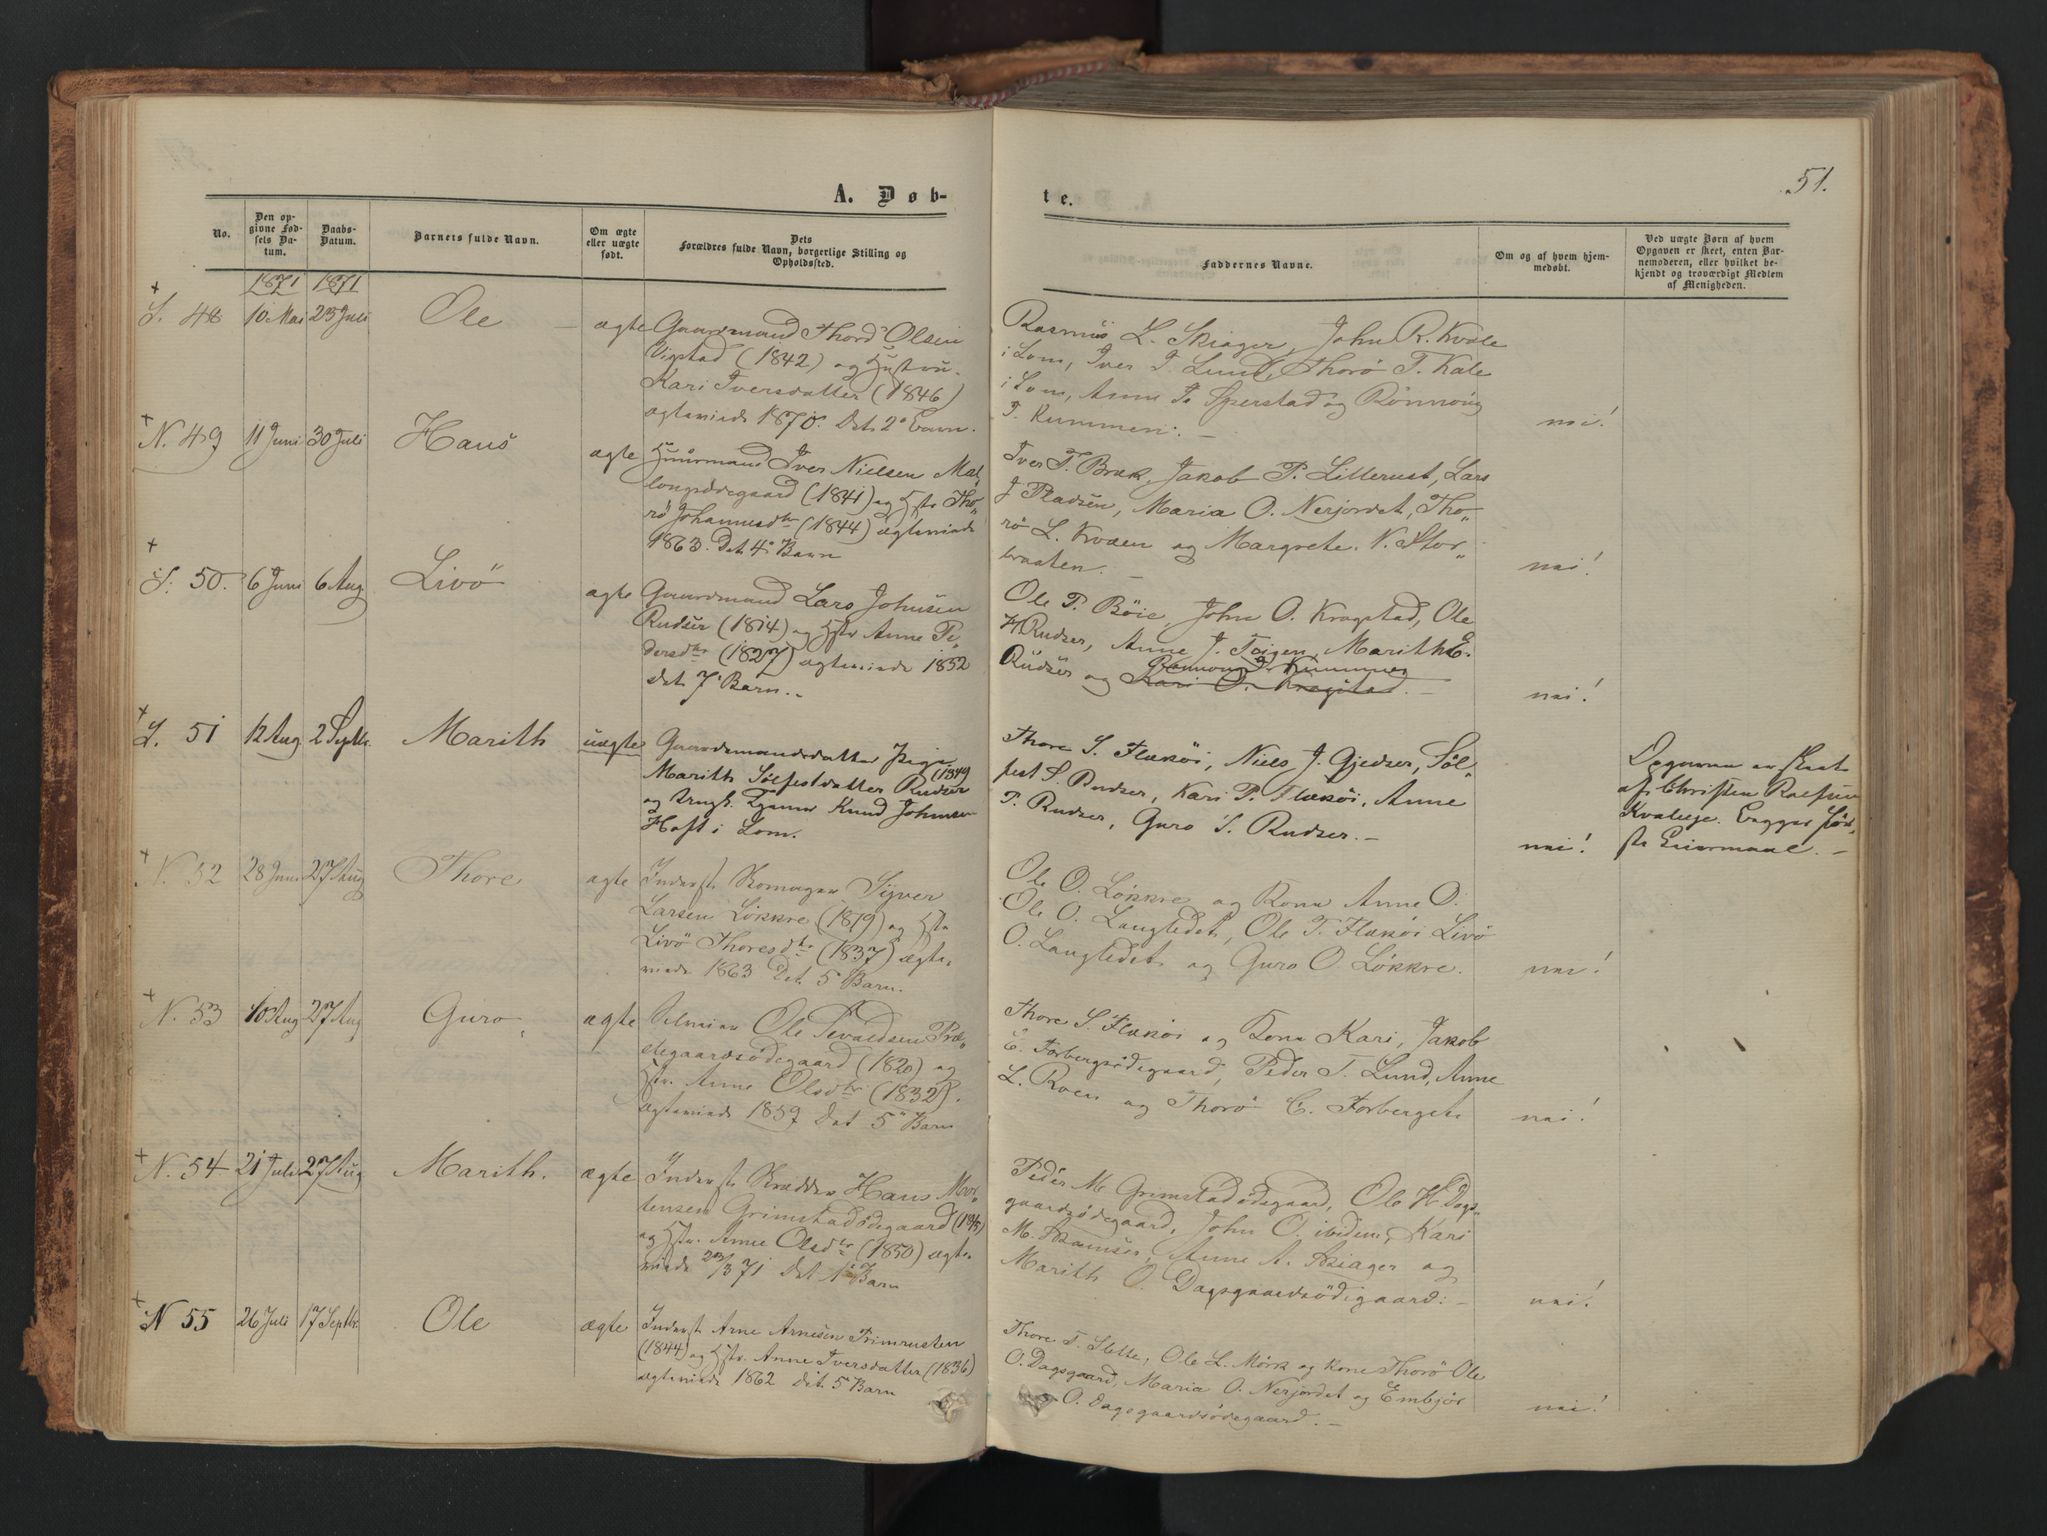 A. Døb-
te.
51.
No.
Den op-
givne Fød-
sels Da-
tum.
Daabs-
Datum.
Barnets fulde Navn.
Om ægte
eller uægte
født.
Dets
Forældres fulde Navn, borgerlige Stilling og
Opholdssted.
Faddernes Navne.
Om og af hvem hjem-
medøbt.
Ved uægte Børn af hvem
Opgaven er skeet, enten Bar-
nemoderen, eller hvilket be-
kjendt og troværdigt Medlem
af Menigheden.
1871 1871
S. 48 10 Mai 23 Juli Ole ægte Gaardmand Thord Olsen
Vigstad (1842) og Hustru
Kari Iversdatter (1846)
ægteviede 1870. Det 2° Barn.
Rasmus L. Skiager, John R. Kvåle
i Lom, Iver T. Lund, Thorø T. Kåle
i Lom, Anne Ps Sperstad og Rønnoug
T. Kummen. —
nei!
N. 49 11 Juni 30 Juli Hans ægte Huusmand Iver Nielsen
(1841) og Hstr Tho„
rø Johannesdtr (1844) ægteviede
1863. Det 4° Barn
Iver T. Bræk, Jakob P. Lillerust, Lars
J Pladsen, Maria O. Nerjordet, Tho„
rø L. Kvæen og Margrete. N. Stor„
braaten. —
nei!
S. 50. 6 Juni 6 Aug. Livö ægte Gaardmand Lars Johnsen
Rudser (1814) og Hstr Anne Pe„
dersdtr (1827) ægteviede 1852
det 7° Barn..
Ole P. Böie, John O. Kragstad, Ole
H Rudser, Anne J. Toigen, Marith E.
Rønnoug P. Kummen
Rudser og Kari O. Kragstad. —
nei!
S. 51 12 Aug. 2 Septbr. Marith uægte Gaardmandsdatter Pige
Marith Sølfestdatter Rudser (1849
og Ungk. Knud Johnsen
Hoft i Lom.
Thore S. Flækøi, Niels J. Gjedser, Søl„
fest S Rudser, Kari P. Flækøi, Anne
P. Rudser, Guro S. Rudser. —
nei!
Opgaven er skeet
af Christen
Begges før„
ste Leiermaal. —
N. 52 28 Juni 27 Aug Thore ægte Inderst Skomager Syver
Larsen Løkkre (1819) og Hstr
Livö Thoresdtr (1837) ægte„
viede 1863 Det 5 Barn.
Ole O. Løkkre og Kone Anne O.
Ole O. Langledet, Ole T. Flækøi Livö
O. Langledet og Guro O Løkkre.
nei!
N. 53 10 Aug 27 Aug Guro ægte Selveier Ole Sevaldsen Præ„
stegaardsødegaard (1820) og
Hstr. Anne Olsdtr (1832).
ægteviede 1859 Det 5° Barn
Thore S. Flækøi og Kone Kari, Jakob
E. Forbergsødegaard, Peder T. Lund, Anne
L. Roen og Thorø C. Forberget
nei!
N. 54 21 Juli 27 Aug Marith. ægte Inderst Skrædder Hans Mor„
tensen Grimstadødegaard (1845)
og Hstr. Anne Olsdtr (1850) ægte„
viede 23/3 71 Det 1° Barn
Peder M. Grimstadødegaard, Ole H. Dags„
gaardsødegaard, John O. ibidem, Kari
M. Ramser, Anne A. Skiager og
Marith O. Dagsgaardsødegaard: —
nei!
N 55 26 Juli 17 Septbr. Ole ægte Inderst Arne Arnesen Trimrusten
(1844) og Hstr. Anne Iversdatter (1836)
ægteviede 1862 Det 5° Barn
Thore T. Slette, Ole L. Mørk og Kone Thorø Ole
O. Dagsgaard, Maria O. Nerjordet og Embjør
O. Dagsgaardsødegaard. —
nei!